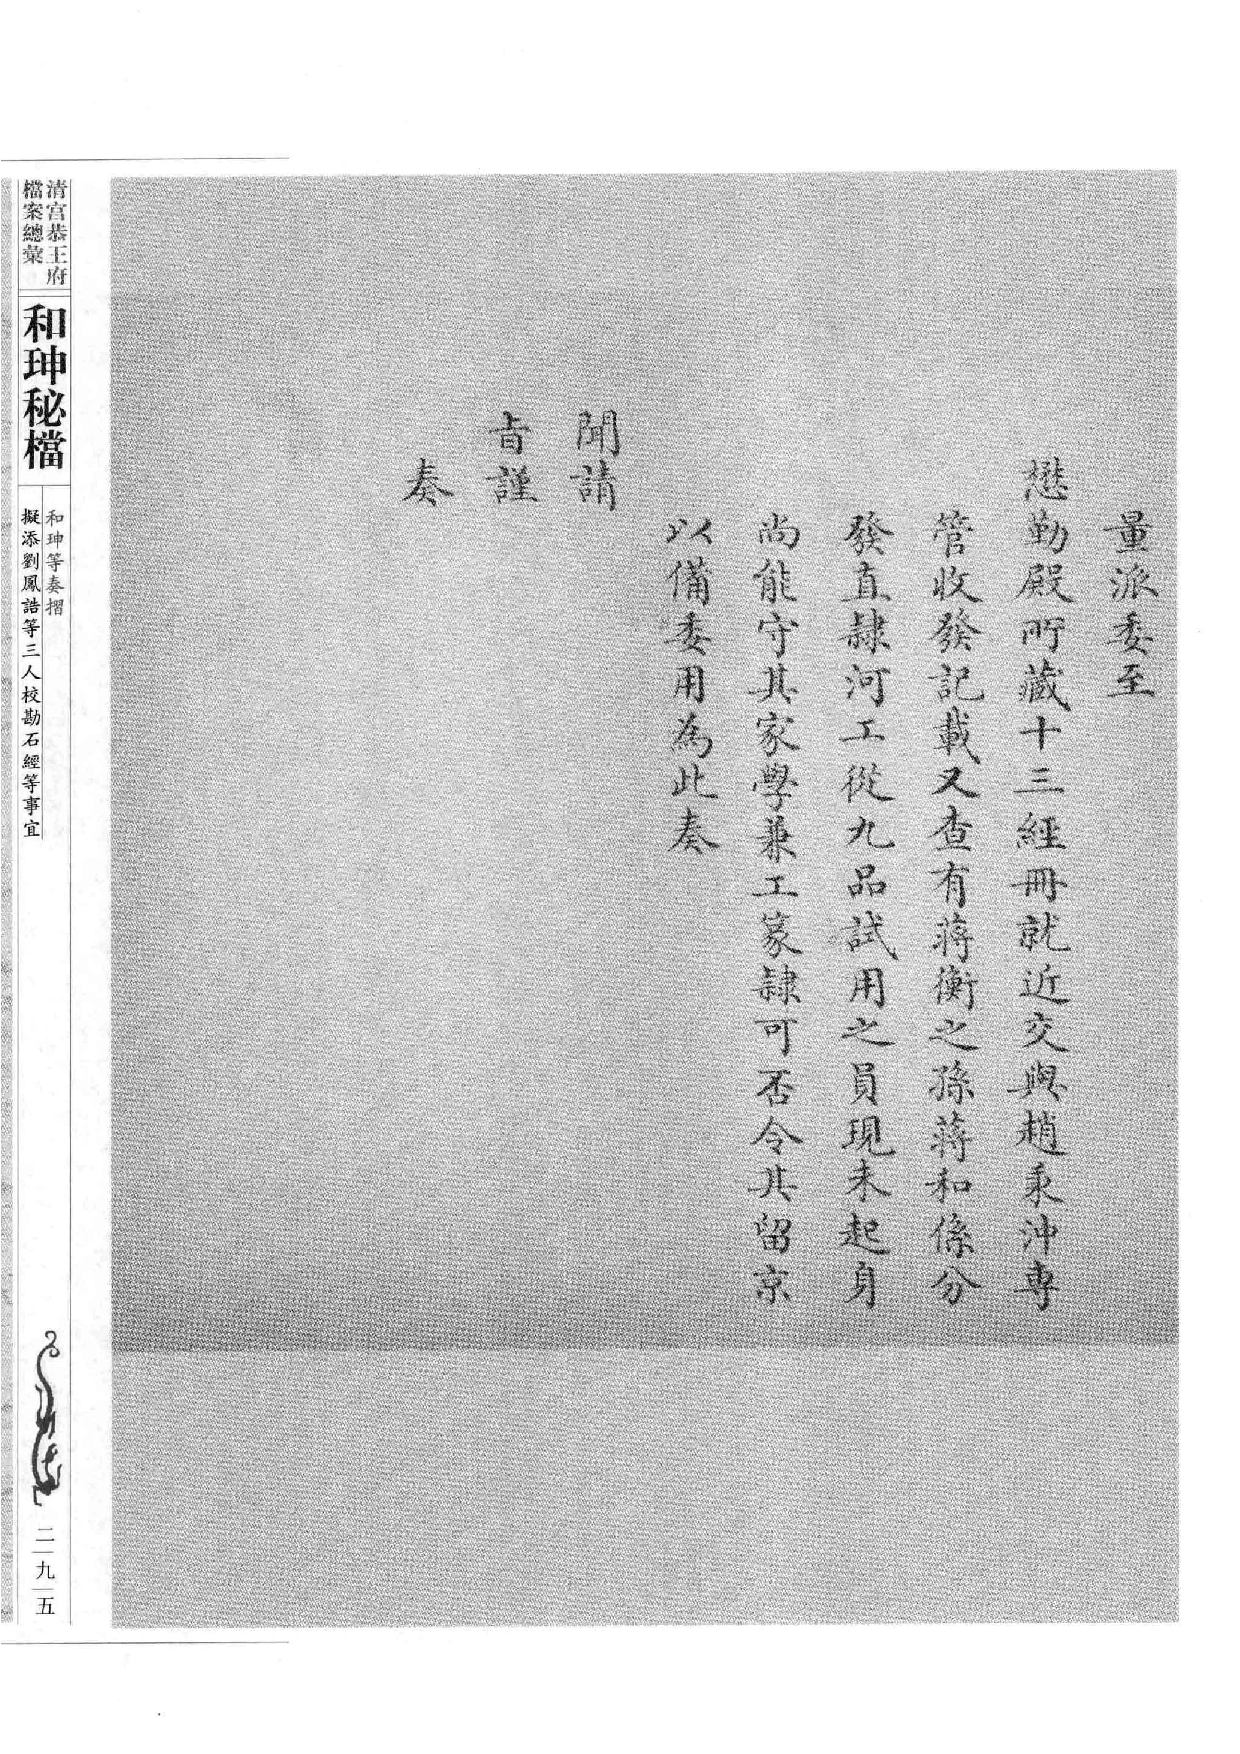 量派委至
懋勤殿所藏十三經冊就近交與趙秉沖専
管收發記載又查有蔣衡之孫蔣和係分
發直隸河工從九品試用之員現未起身
尚能守其家學兼工篆隸可否令其留京
以備委用為此奏
聞請
旨謹
奏
清宮恭王府
檔案總彙
和珅秘檔
和珅等奏摺
擬添劉鳳誥等三人校勘石經等事宜
二九五